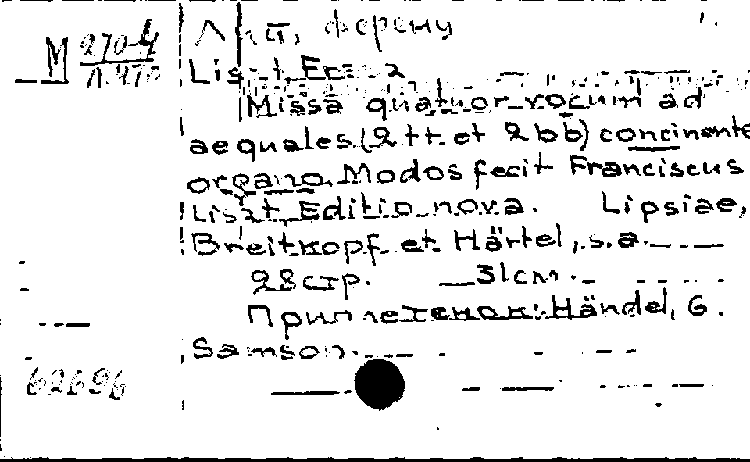 М 270-4
Л.470
Лист, Ференц
Liszt, Franz
Missa quatuor vocum ad
aequales (2 tt. et 2 bb) concinente
organo. Modos fecit Franciscus
Liszt. Editio nova. Lipsiae,
Breitkopf et Härtel, s.a.
28 стр. 31 см.
Приплетенок: Händel, G.
Samson.
62696